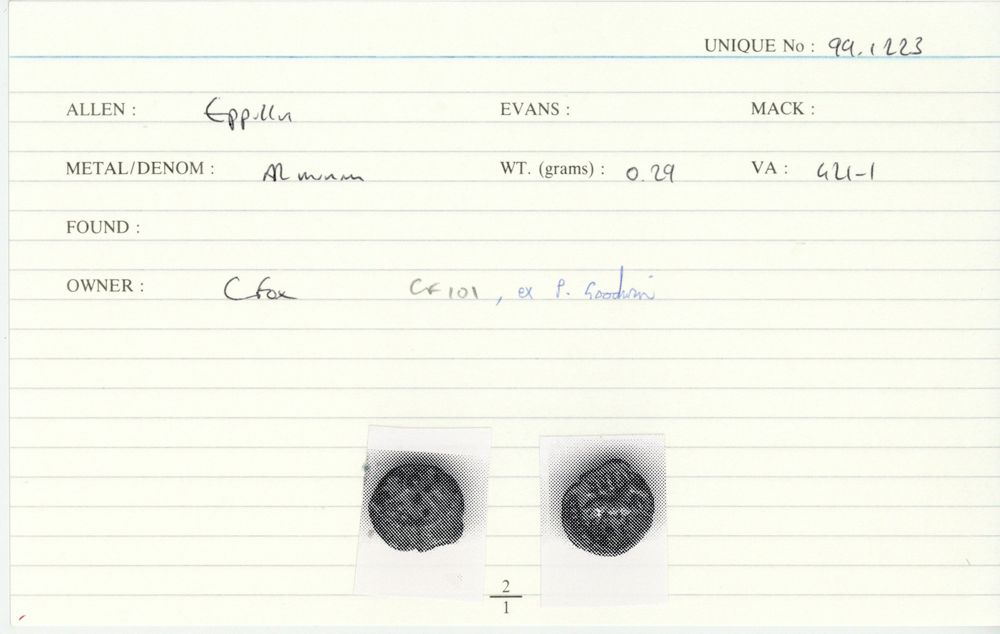 UNIQUE No : 99.1223
ALLEN : Eppillus EVANS : MACK :
METAL/DENOM : AR minim WT. (grams) : 0.29 VA : 421-1
FOUND :
OWNER : C Fox CF 101 , ex P. Goodwin
2
1